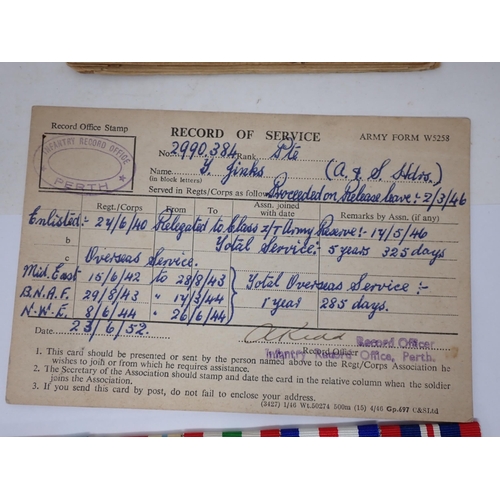 Record Office Stamp
RECORD OF SERVICE
ARMY FORM W5258
INFANTRY RECORD OFFICE
PERTH
No. 2990384 Rank Pte
Jinks (A. & S. Hdrs.)
(in block letters)
Served in Regts/Corps as follows Proceeded on Release leave:- 2/3/46
Regt./Corps From To Assn. joined with date Remarks by Assn. (if any)
Enlisted:- 24/6/40 Relegated to Class Z/T Army Reserve:- 14/5/46
b Total Service:- 5 years 325 days
c Overseas Service.
Mid. East 15/6/42 to 28/8/43 Total Overseas Service:-
B.N.A.F. 29/8/43 " 14/3/44 1 year 285 days.
N.W.E. 8/6/44 " 26/6/44
Date 23/6/52.
Record Officer
Record Officer
Infantry Record Office, Perth.
1. This card should be presented or sent by the person named above to the Regt/Corps Association he
wishes to join or from which he requires assistance.
2. The Secretary of the Association should stamp and date the card in the relative column when the soldier
joins the Association.
3. If you send this card by post, do not fail to enclose your address.
(2427) 1/46 Wt.50274 500m (15) 4/46 Gp.697 C&SLtd